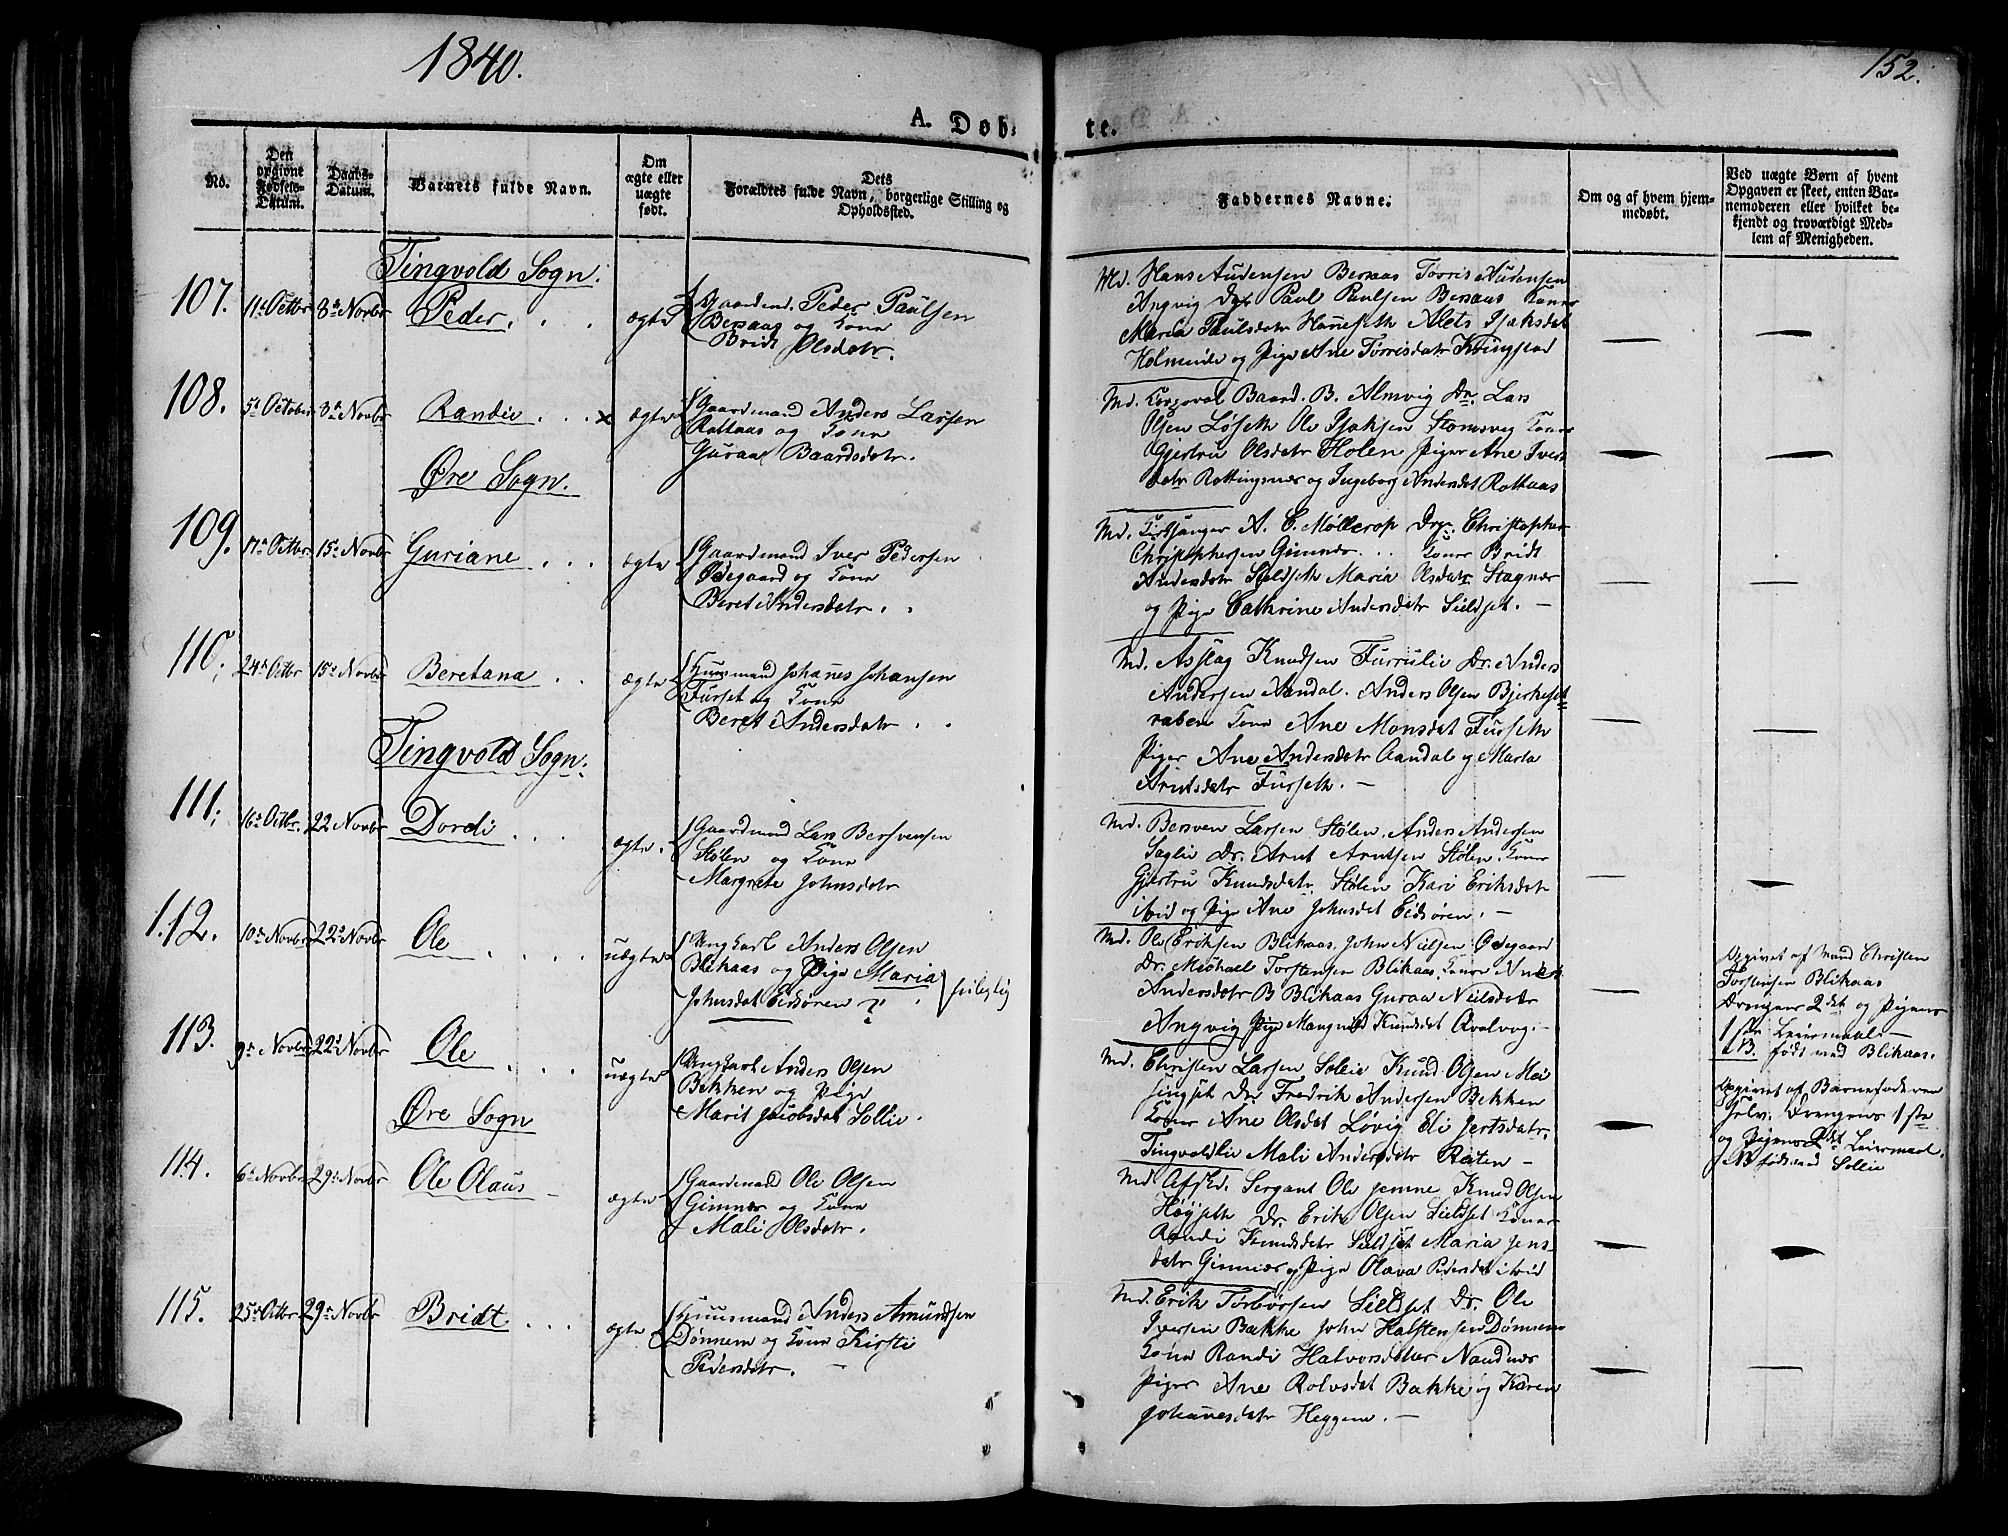 1840.
152.
A. Døb-
te.
No.
Den opgivne Fødsels-Datum.
Daabs-Datum.
Barnets fulde Navn.
Om ægte eller uægte født.
Dets Forældres fulde Navn, borgerlige Stilling og Opholdssted.
Faddernes Navne.
Om og af hvem hjemmedøbt.
Ved uægte Børn af hvem Opgaven er skeet, enten Barnemoderen eller hvilket bekjendt og troværdigt Medlem af Menigheden.
Tingvold Sogn:
107. 11te Octbr 8de Novbr Peder. ægte
Gaardmd. Peder Paulsen
Bersaas og Kone
Bridt Olsdatr.
Md. Hans Andersen Bersaas Torris Andersen
Angvig Dr. Paul Paulsen Bersaas Koner
Maria Paulsdatr Haneseth Alets Isaksdat
Holmeide og Pige Ane Torrisdatr Kringstad
108. 5te October 8de Novbr Randie ægte
Gaardmand Anders Larsen
Rottaas og Kone
Guraa Baardsdatr.
Md. Baard. B. Almvig Dr. Lars
Olsen Løseth Ole Isaksen Stomsvig Koner
Gjertru Olsdatr Holen Piger Ane Iversdatr
Rottingsnæs og Ingeborg Andersdat Rottaas
Øre Sogn.
109. 17de Octbr 15de Novbr Guriane ægte
Gaardmand Iver Pedersen
Ødegaard og Kone
Beret Andersdatr.
Md. Kirksanger A. C. Møllerop Dr. Christopher
Christophersen Gimnæs Koner Bridt
Andersdatr Sieldseth Maria Olsdatr Stagnæs
og Pige Cathrine Andersdatr Sieldset. —
110. 24de Octbr 15de Novbr Beretana ægte
Huusmand Johanes Johansen
Furset og Kone
Beret Andersdatr
Md. Asslag Knudsen Furrulie Dr. Anders
Andersen Aandal. Anders Olsen Bjerkeset
Kone Ane Monsdat Furseth
Piger Ane Andersdatr Aandal og Marta
Arntsdatr Furseth. —
Tingvold Sogn:
111. 16de Octbr. 22 Novbr Dordi ægte.
Gaardmand Lars Bersvensen
Stølen og Kone
Margrete Johnsdatr
Md. Bersven Larsen Stølen. Anders Andersen
Saglie Dr. Arnt Arntsen Stølen. Koner
Gjertru Knudsdatr. Stølen Kari Eriksdatr
ibid og Pige Ane Johnsdat Eidsøren. —
112. 10de Novbr 22de Novbr Ole uægte
Ungkarl Anders Olsen
Blikaas og Pige Maria
Johnsdat Eidsøren ?
Md. Ole Eriksen Blikaas. John Nielsen Ødegaard
Dr. Michael Torstensen Blikaas. Koner
Andersdatr B Blikaas Guraa Nielsdatr
Angvig Pige Mangnild Knudsdat Qvalvog. —
Opgivet af Mand Christen
Torstensen Blikaas
Drengens 2det og Pigens
1ste Leiermaal —
NB. født ved Blikaas.
113. 9de Novbr 22de Novbr Ole uægte
Ungkarl Anders Olsen
Bekken og Pige
Marit Jacobsdat Sollie.
Md. Christen Larsen Sollie Knud Olsen Meisingset
Dr. Fredrik Andersen Bekken
Koner Ane Olsdat Løvig Eli Jertsdatr.
Tingvoldlie Mali Andersdatr Røten —
Opgivet af Barnefaderen
Selv. Drengens 1ste
og Pigens 2det Leiermaal.
NB født ved Sollie
Øre Sogn
114. 6te Novbr 29de Novbr Ole Olaus — ægte
Gaardmand Ole Olsen
Gimnæs og Kone
Mali Olsdatr.
Md Afskd. Sergant Ole Jemne Knud Olsen
Høgseth Dr. Erik Olsen Sieldset Koner
Randi Knudsdatr Sieldset Maria Jensdatr
Gimnæs og Pige Olava Pedersdat ibid
115. 25de Octbr 29de Novbr Bridt ægte
Huusmand Anders Amundsen
Dønnem og Kone Kirsti
Pedersdatr. —
Md. Erik Torbørsen Sieldset Dr. Ole
Iversen Bakke John Halstensen Dønnem
Kone Randi Halvorsdatter Naudnæs
Piger Ane Rolvsdat Bakke og Karen
Johannesdatr Heggem. —